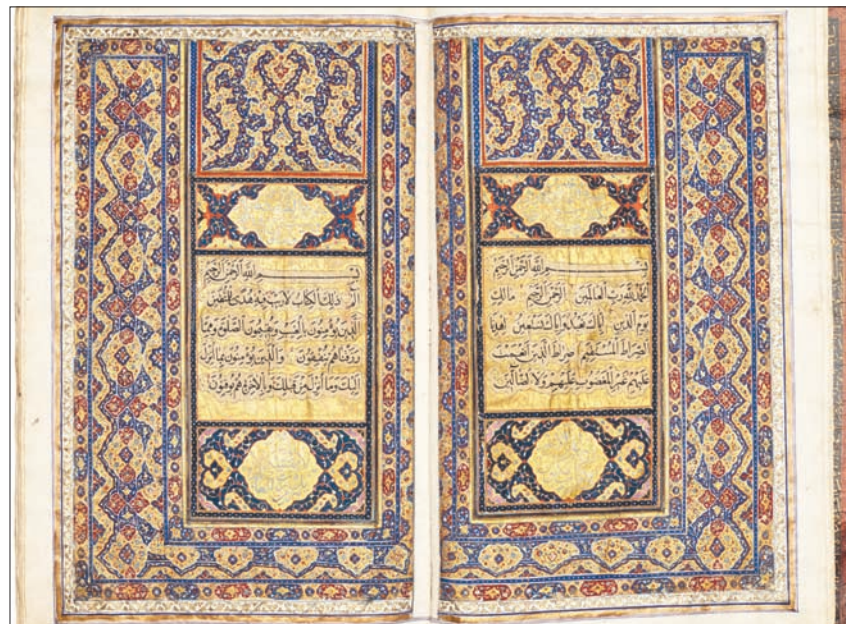 بسم الله الرحمن الرحيم
الحمد لله رب العالمين الرحمن الرحيم مالك
يوم الدين إياك نعبد وإياك نستعين اهدنا
الصراط المستقيم صراط الذين انعمت
عليهم غير المغضوب عليهم ولا الضالين
بسم الله الرحمن الرحيم
الم ذلك الكتاب لا ريب فيه هدى للمتقين
الذين يؤمنون بالغيب ويقيمون الصلوة ومما
رزقناهم ينفقون والذين يؤمنون بما انزل
اليك وما انزل من قبلك وبالاخرة هم يوقنون